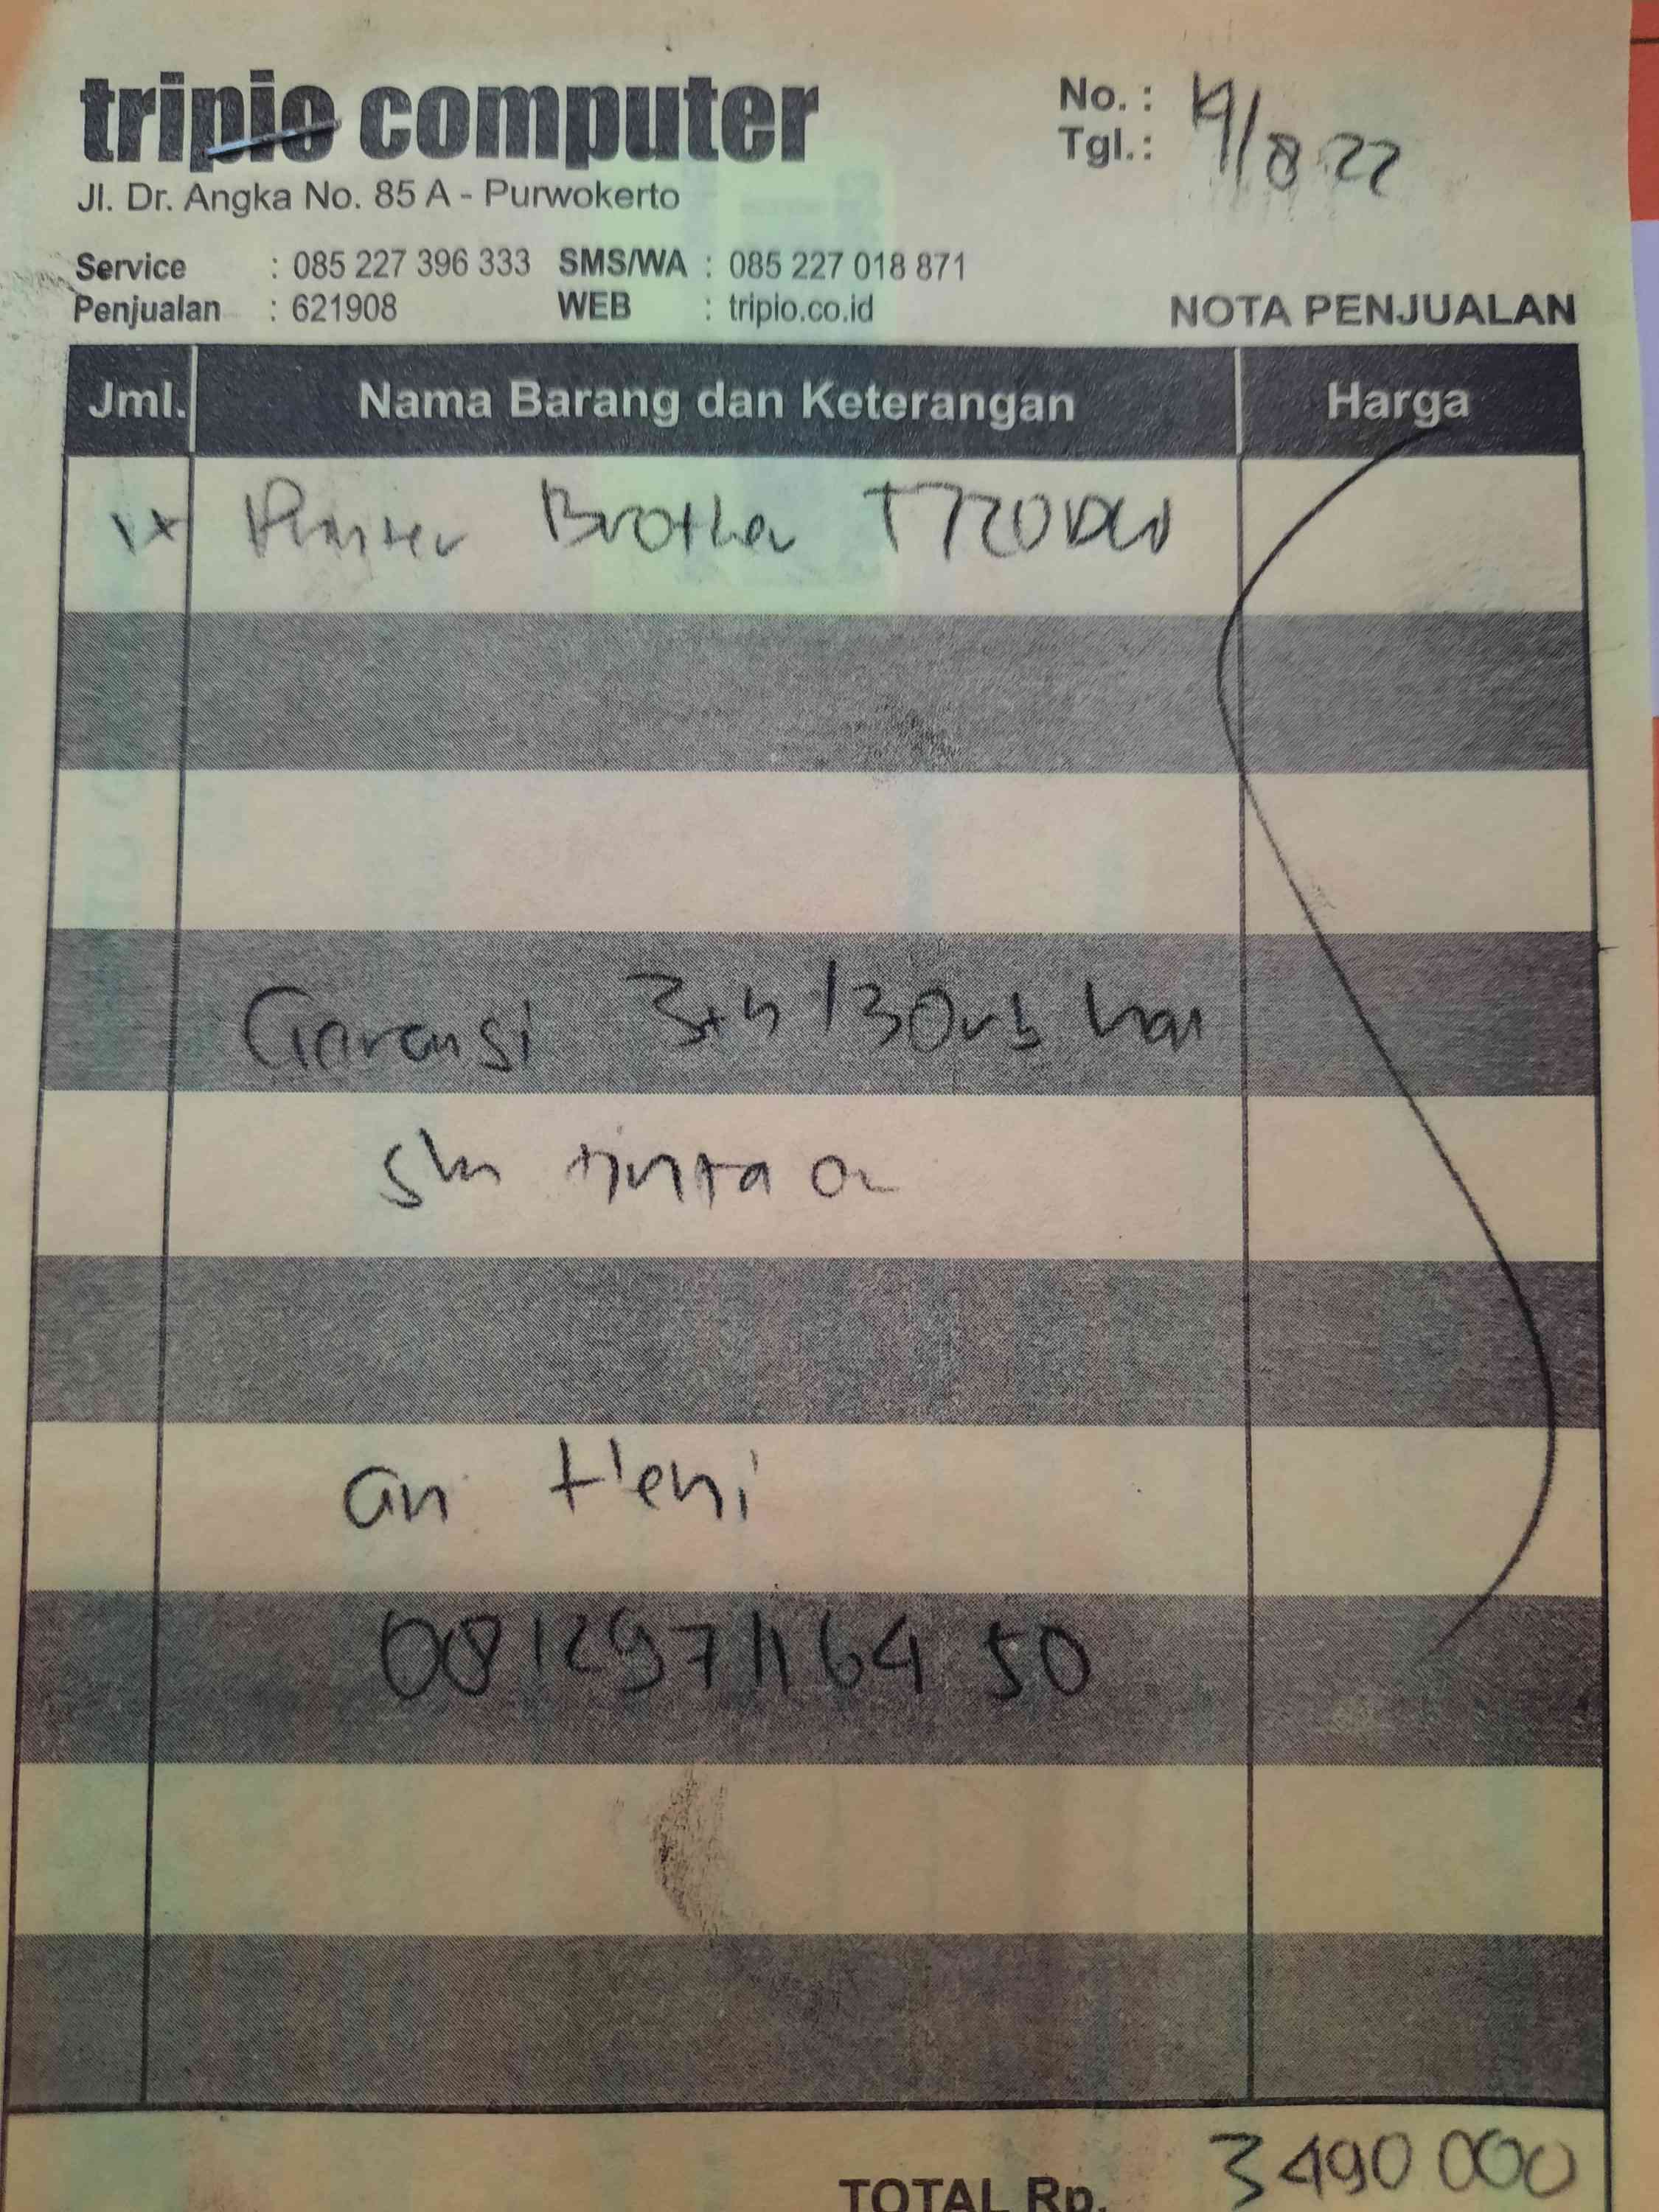 tripio computer
No. :
Jl. Dr. Angka No. 85 A - Purwokerto
Tgl.: 19/8 22
Service : 085 227 396 333 SMS/WA : 085 227 018 871
Penjualan : 621908 WEB : tripio.co.id
NOTA PENJUALAN
Jml. Nama Barang dan Keterangan Harga
1x Printer Brother T720DW
Garansi 3th/30rb
tinta
an Heni
TOTAL Rp. 3490 000